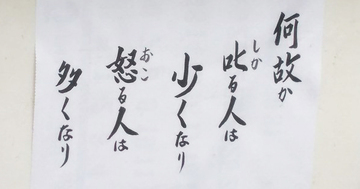 何故か
叱る人は
少くなり
怒る人は
多くなり